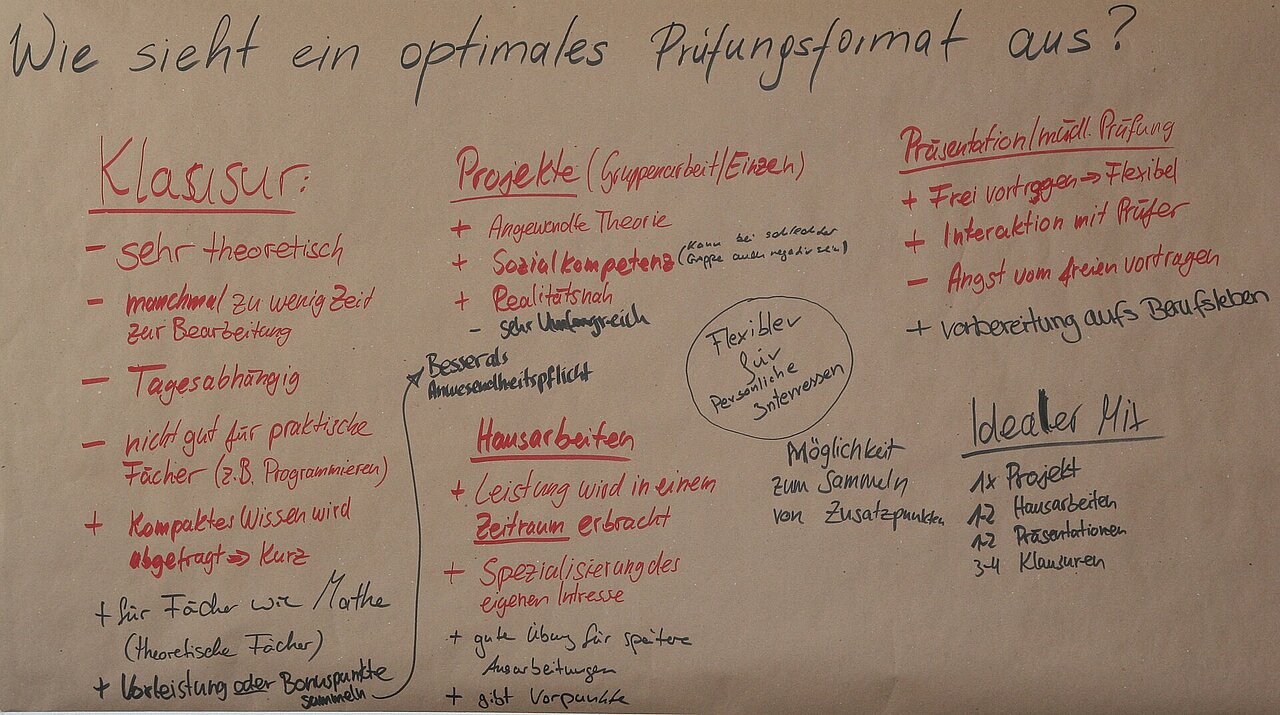 Wie sieht ein optimales Prüfungsformat aus?
Klausur:
- sehr theoretisch
- manchmal zu wenig Zeit
zur Bearbeitung
- Tagesabhängig
- nicht gut für praktische
Fächer (z.B. Programmieren)
+ Kompaktes Wissen wird
abgefragt => Kurz
+ für Fächer wie Mathe
(theoretische Fächer)
+ Vorleistung oder Bonuspunkte
sammeln
Projekte (Gruppenarbeit/Einzeln)
+ Angewendte Theorie
+ Sozialkompetenz (kann bei schlechter
Gruppe auch negativ sein)
+ Realitätsnah
- sehr Umfangreich
Besser als
Anwesendheitspflicht
Hausarbeiten
+ Leistung wird in einem
Zeitraum erbracht
+ Spezialisierung des
eigenen Intresse
+ gute Übung für spätere
Ausarbeitungen
+ gibt Vorpunkte
Flexibler
für
Persönliche
Interressen
Möglichkeit
zum Sammeln
von Zusatzpunkten
Präsentation/mündl. Prüfung
+ Frei vortragen => Flexibel
+ Interaktion mit Prüfer
- Angst vom freien vortragen
+ vorbereitung aufs Berufsleben
Idealer Mix
1x Projekt
1-2 Hausarbeiten
1-2 Präsentationen
3-4 Klausuren